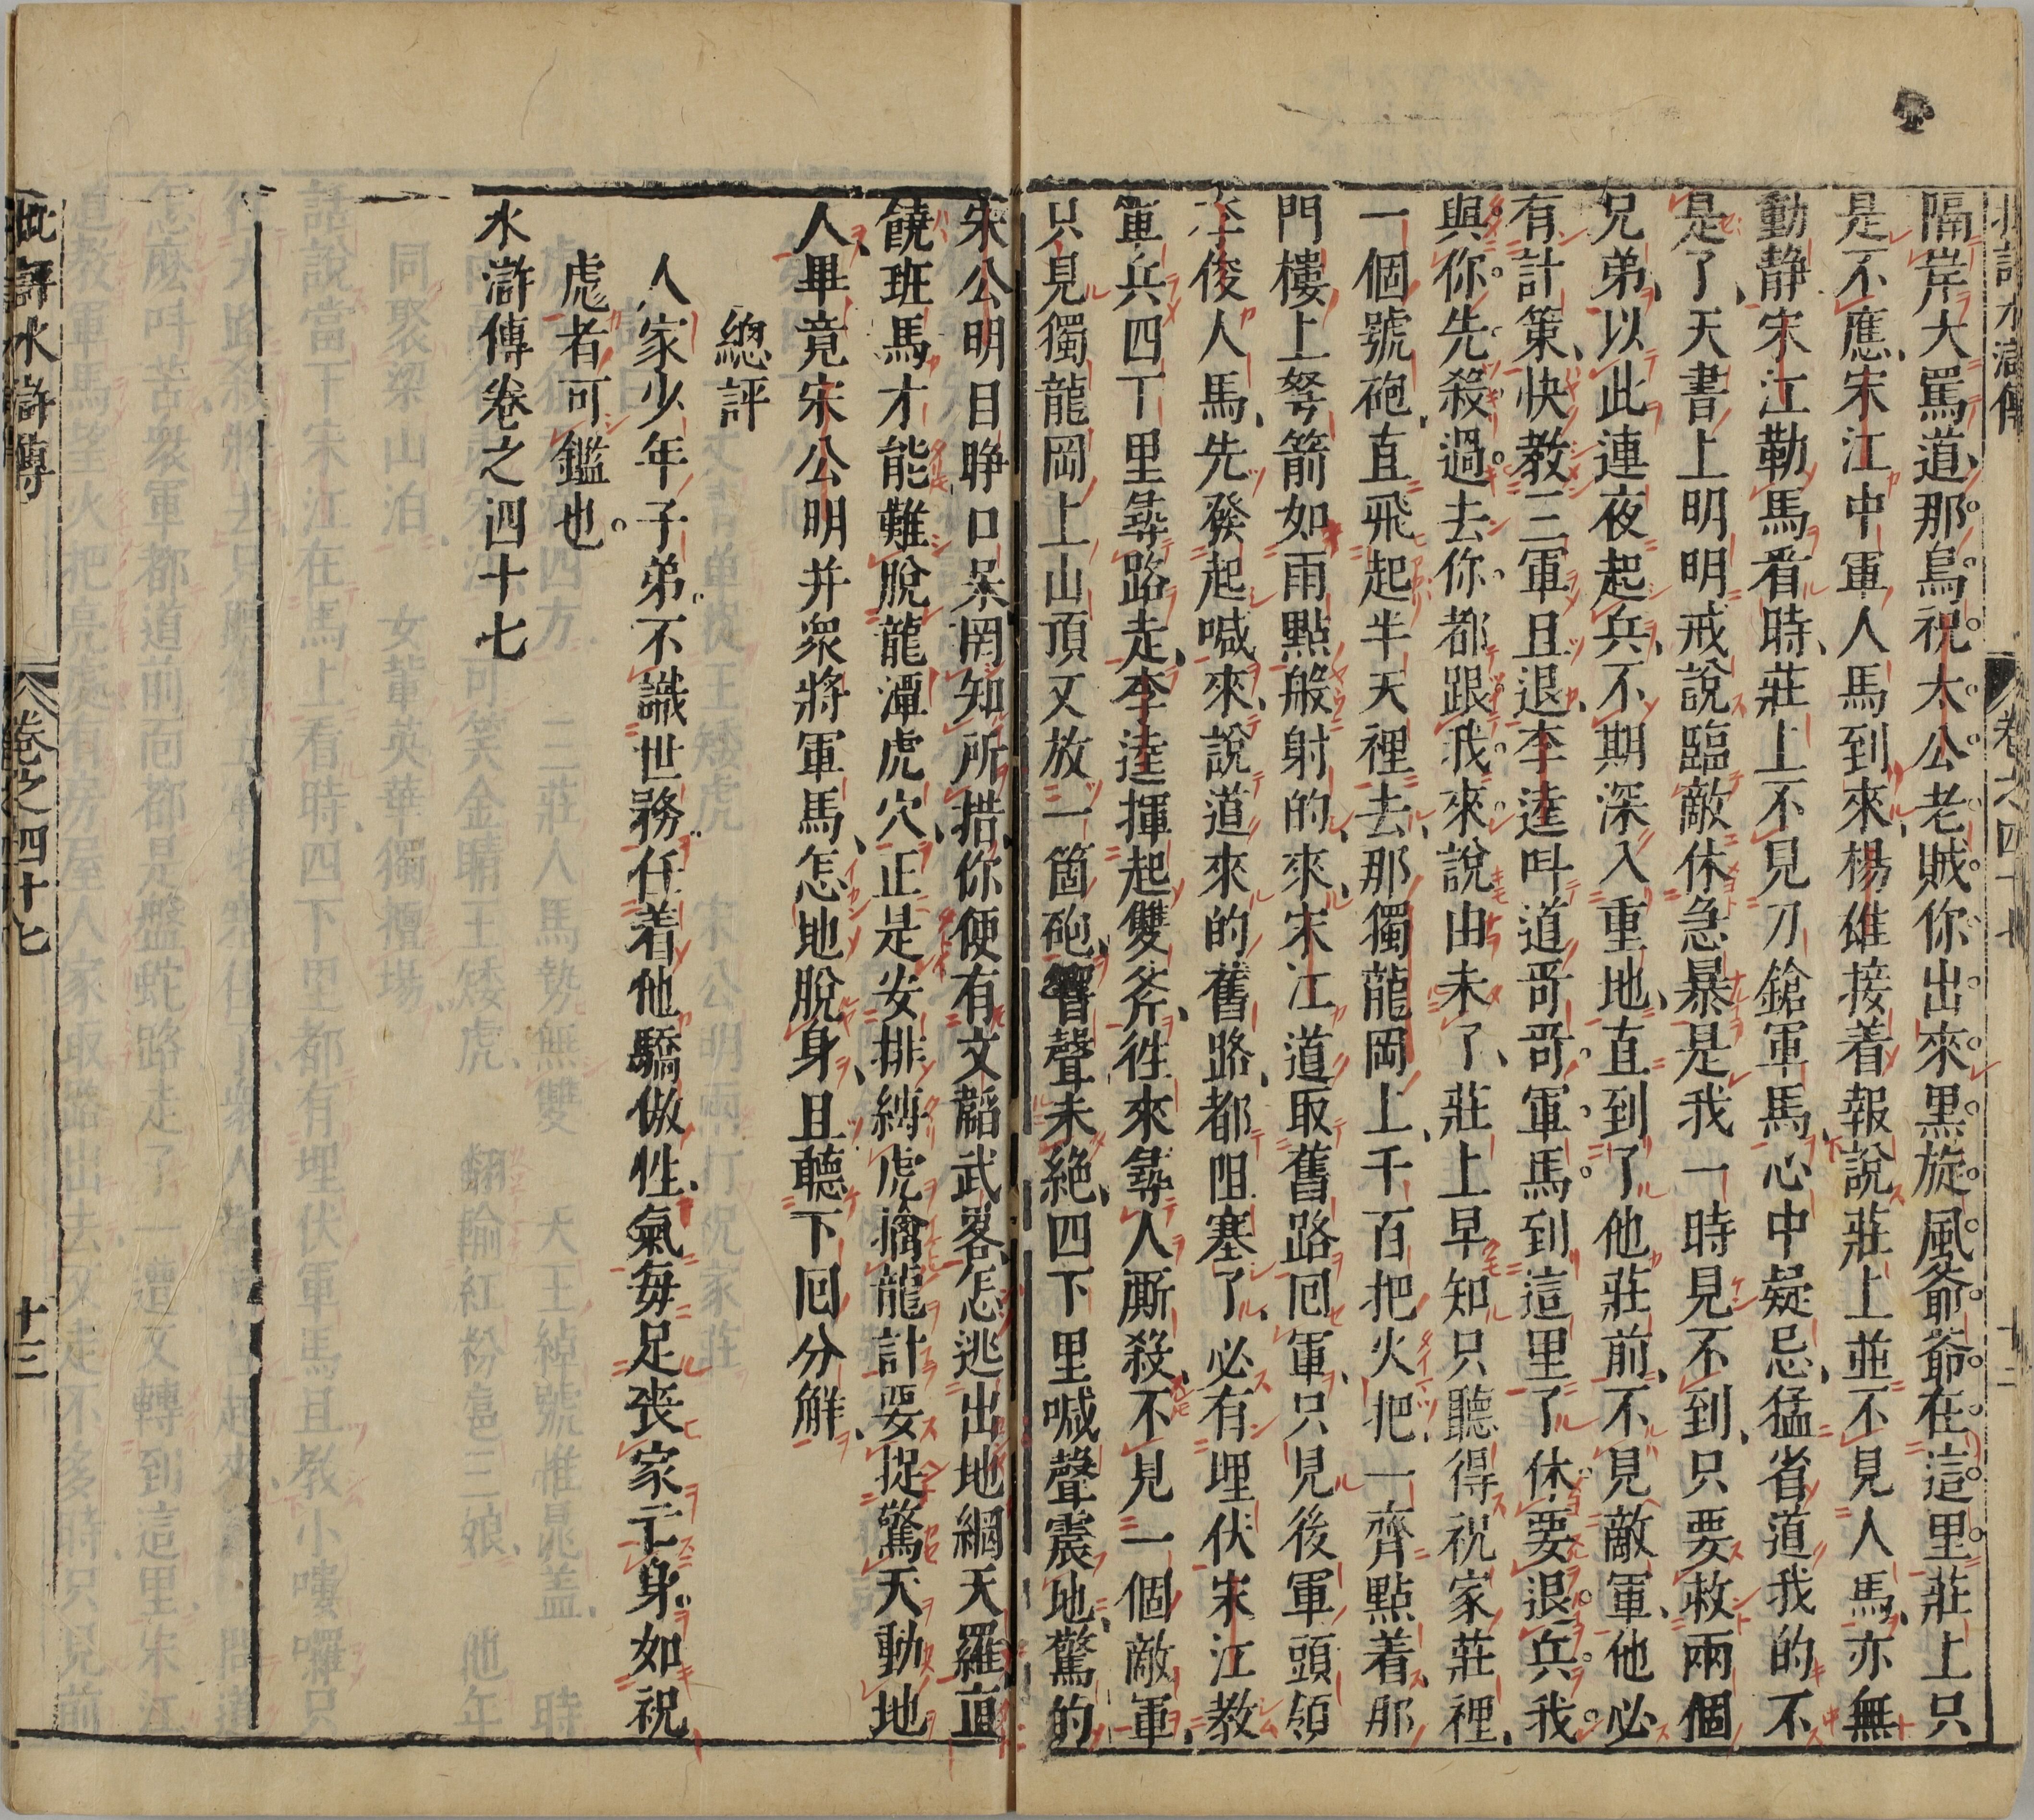 批評水滸傳 卷之四十七 十二
隔岸大罵道、那鳥祝太公老賊你出來黑旋風爺爺在這里莊上只
是不應、宋江中軍人馬到來、楊雄接着報說莊上並不見人馬、亦無
動靜宋江勒馬看時、莊上不見刀鎗軍馬、心中疑忌、猛省道我的不
是了、天書上明明戒說臨敵休急暴是我一時見不到、只要救兩個
兄弟、以此連夜起兵、不期深入重地、直到了他莊前、不見敵軍、他必
有計策、快教三軍且退、李逵呌道哥哥軍馬到這里了休要退兵我
與你先殺過去你都跟我來說由未了、莊上早知只聽得祝家莊裡、
一個號砲、直飛起半天裡去、那獨龍岡上、千百把火把、一齊點着、那
門樓上弩箭如雨點般射的來、宋江道取舊路囘軍、只見後軍頭領
李俊人馬、先發起喊來、說道來的舊路、都阻塞了、必有埋伏宋江教
軍兵四下里尋路走、李逵揮起雙斧、徃來尋人厮殺、不見一個敵軍、
只見獨龍岡上山頂又放一箇砲、響聲未絶、四下里喊聲震地、驚的
宋公明目睜口呆罔知所措、你便有文韜武畧、怎逃出地網天羅、直
饒班馬才能難脫龍潭虎穴、正是安排縛虎擒龍計要捉驚天動地
人、畢竟宋公明并衆將軍馬、怎地脫身、且聽下囘分解、
總評
人家少年子弟、不識世務任着他驕傲性、氣每足喪家亡身。如祝
虎者可鑑也。
水滸傳卷之四十七
批評水滸傳 卷之四十七 十三